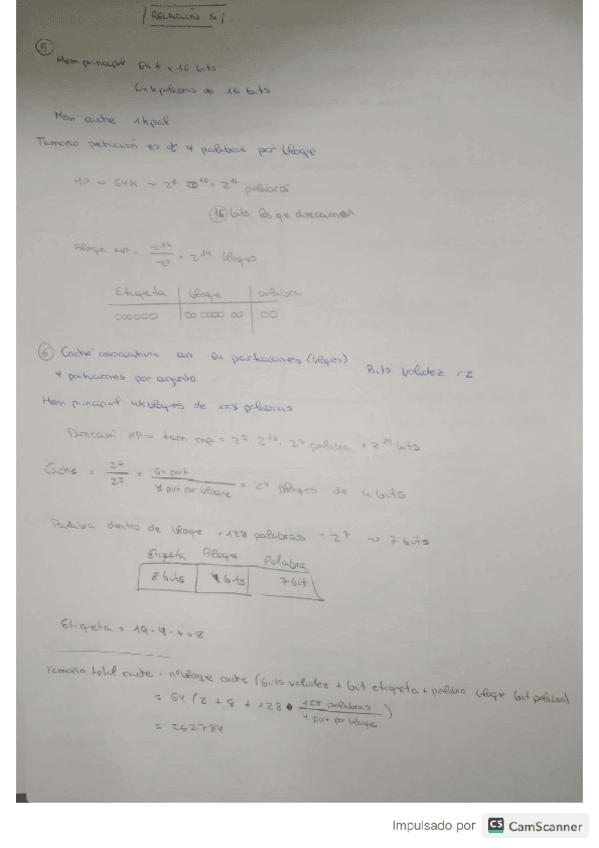 RELACIÓN 5
5
Mem principal 64K x 16 bits
64k palabras de 16 bits
Mem cache 1kpal
Tamaño petición es de 4 palabras por bloque
MP ~ 64K ~ 2⁶ 2¹⁰ = 2¹⁶ palabras
16 bits los que direccionan
Bloque MP = 2¹⁶ / 2² = 2¹⁴ bloques
Etiqueta | bloque | palabra
000000 | 00 0000 00 | 00
6 Caché asociativa con 64 particiones (bloques) Bits validez = 2
4 particiones por conjunto
Mem principal 4K bloques de 128 palabras
Dirección MP ~ tam mp = 2² 2¹⁰ · 2⁷ palabra = 2¹⁹ bits
Cache = 2⁶ / 2² = 64 part / 4 part por bloque = 2⁴ bloques de 4 bits
Palabra dentro de bloque = 128 palabras = 2⁷ ~ 7 bits
Etiqueta Bloque Palabra
8 bits 4 bits 7 bit
Etiqueta = 19 - 4 - 7 = 8
Tamaño total cache = nº bloque cache (bits validez + bit etiqueta + palabra bloque bit palabra)
= 64 (2 + 8 + 128 · 128 palabras / 4 part por bloque)
= 262784
Impulsado por CS CamScanner